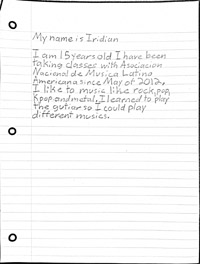 My name is Iridian
I am 15 years old I have been
taking classes with Asociacion
Nacional de Musica Latino
Americana since May of 2012.
I like to music like rock, pop,
Kpop and metal. I learned to play
the gutiar so I could play
different musics.